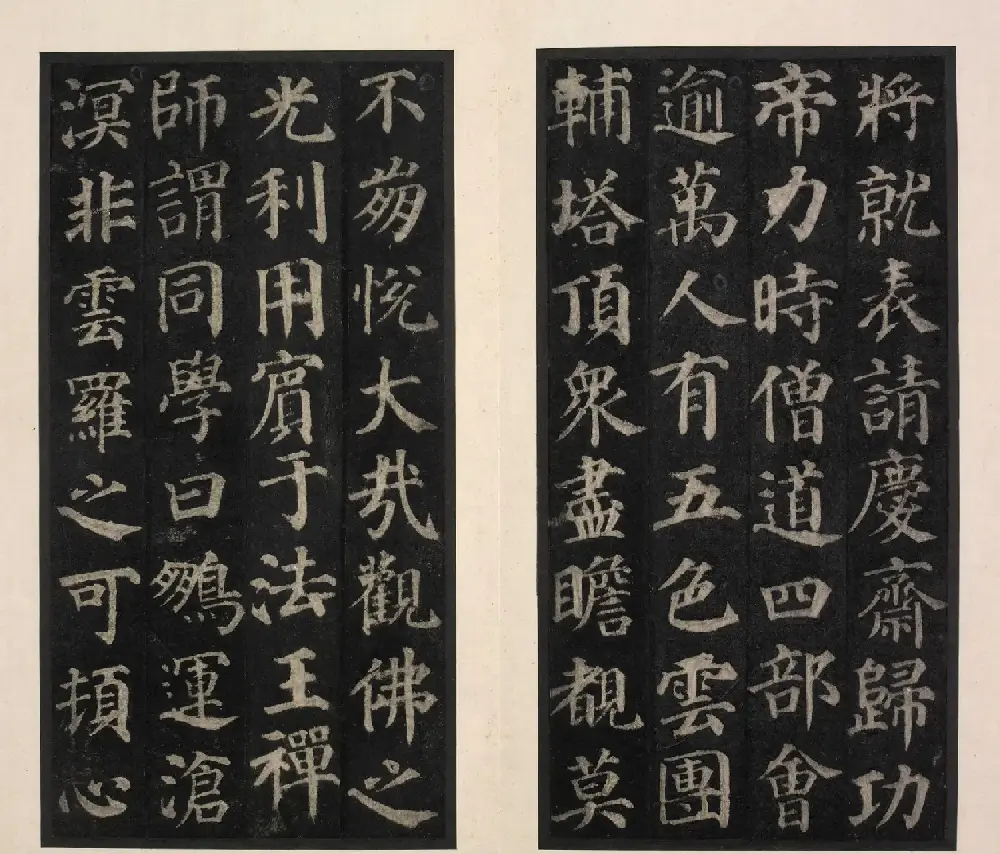 將就表請慶齋歸功
帝力時僧道四部會
逾萬人有五色雲團
輔塔頂衆盡瞻覩莫
不崩悅大哉觀佛之
光利用賓于法王禪
師謂同學曰鵬運滄
溟非雲羅之可頓心